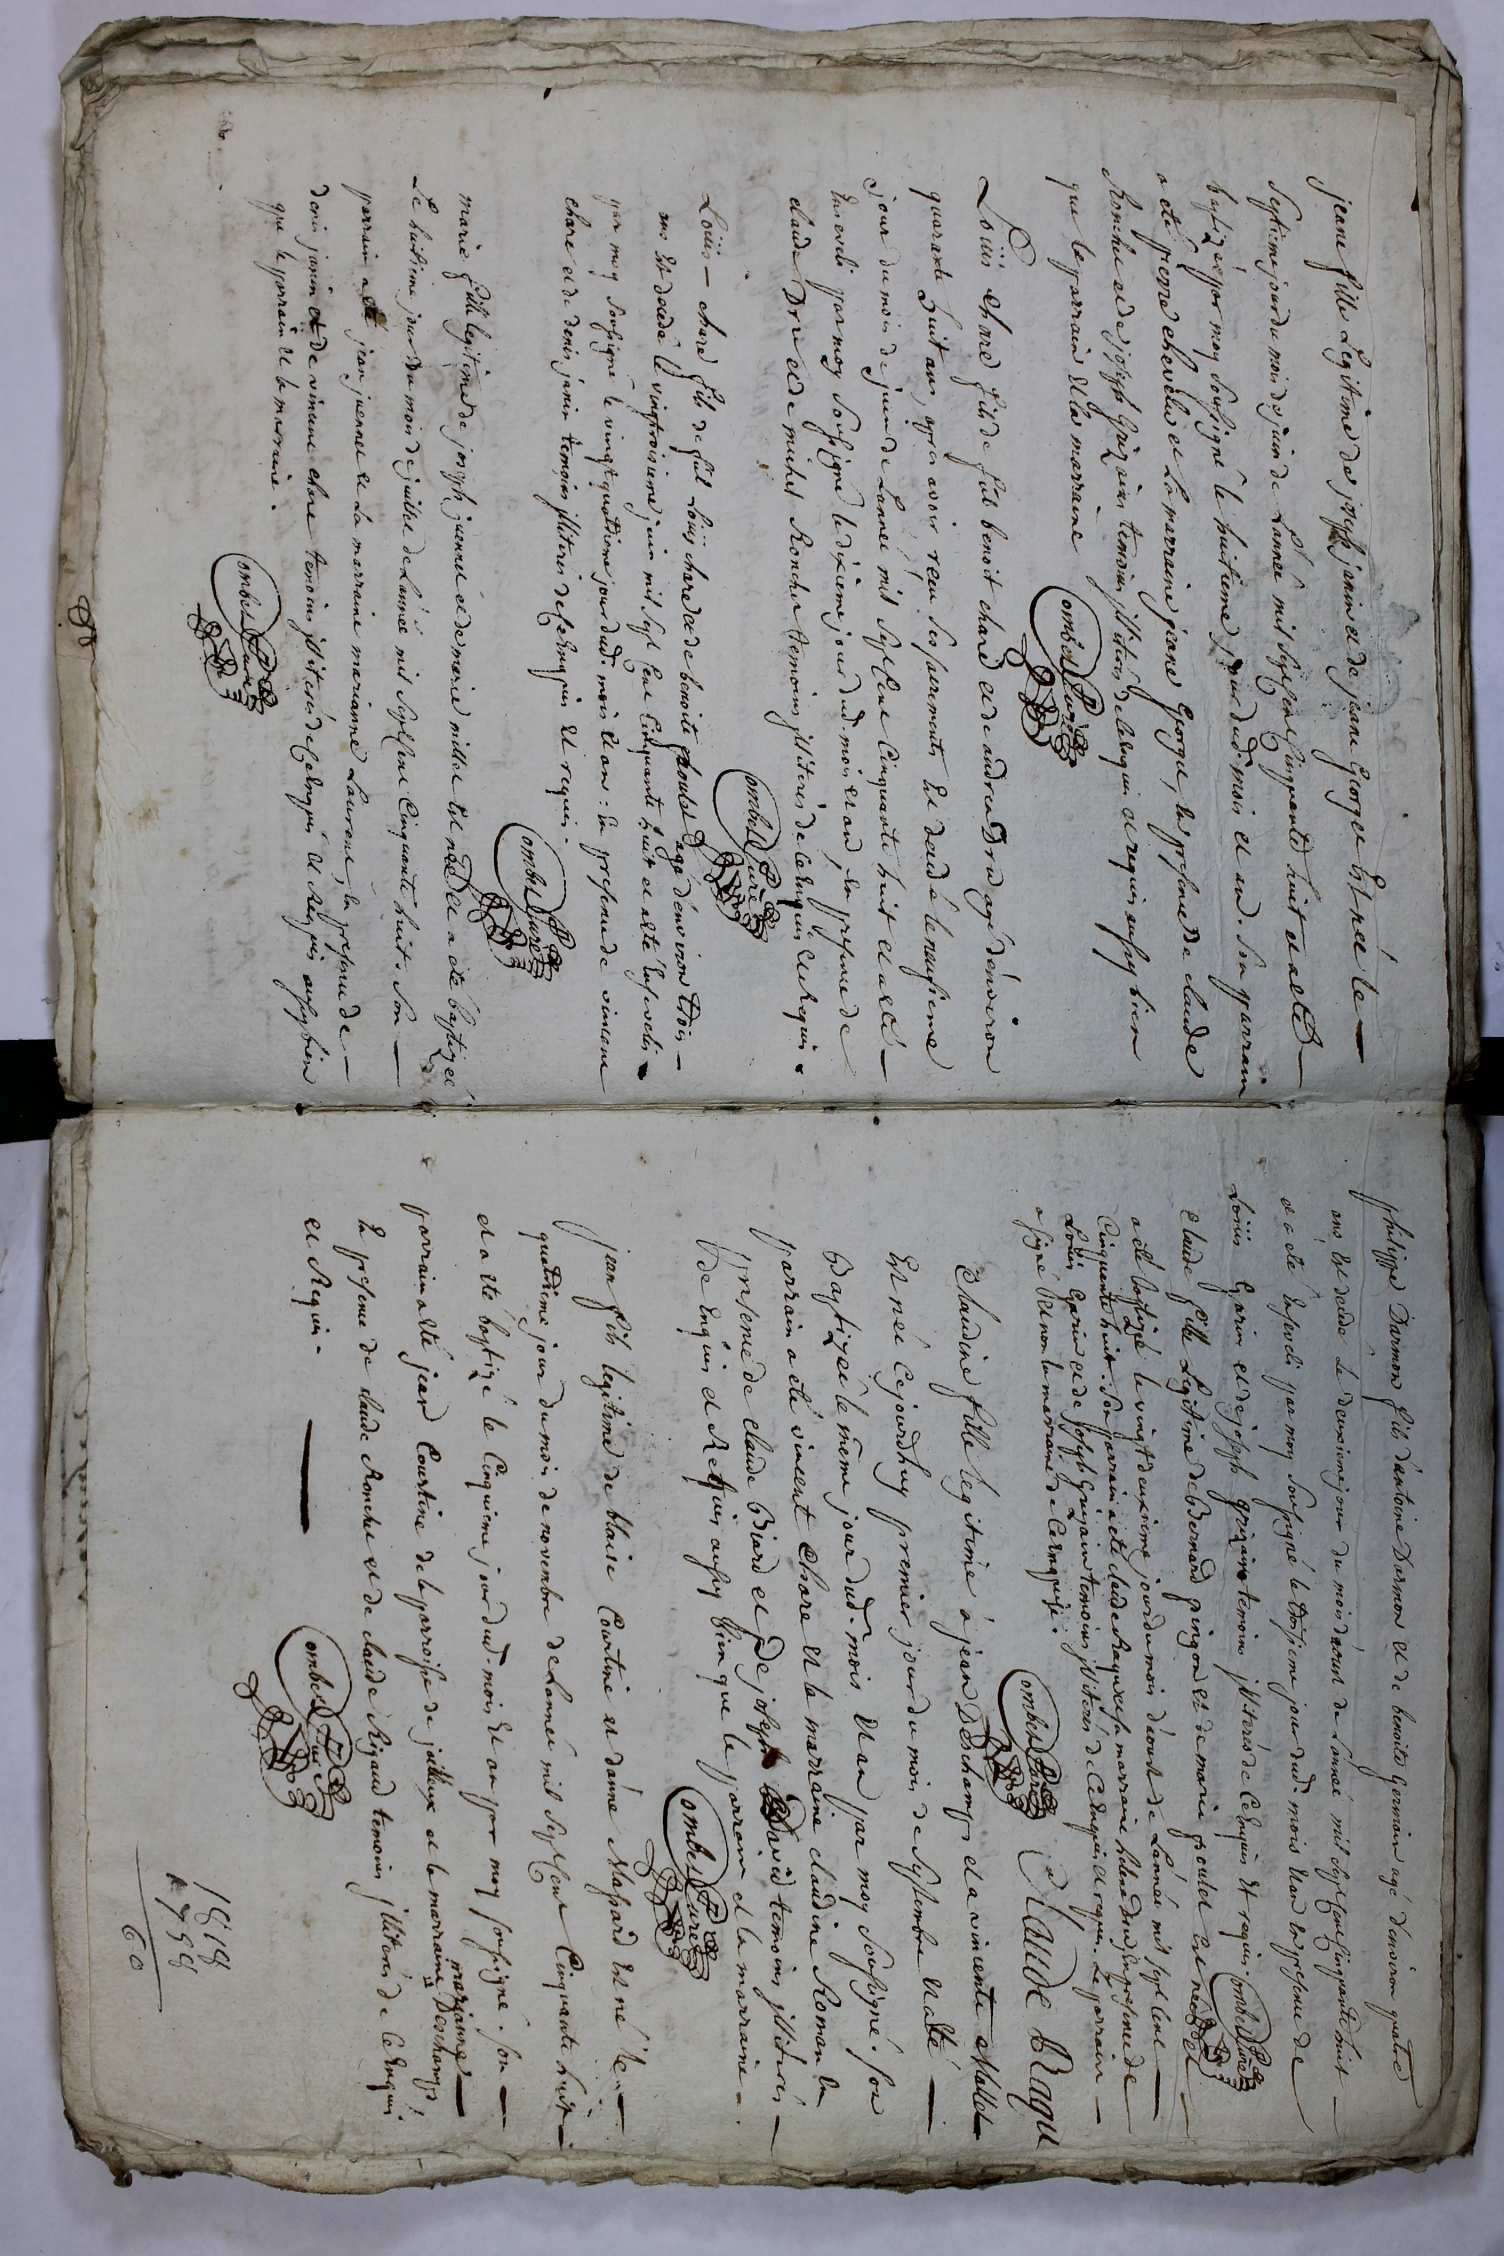 jeane fille Legitime de joseph janin et de jeane George Est née le
septieme jour du mois de juin de L'année mil sept cent cinquante huit et a eté
baptizée par moy soussigné le huitieme jour dud. mois et an. Son parrain
a eté pierre chevelu et La marraine jeane George, En presence de claude
Ronchu et de joseph Grizain temoins illiterés de enquis et requis aussy bien
que le parrain Et la marraine
ombet Curé
Loüis chare fils de fût benoit chare et de andrea Dru agé d'environ
quarante huit ans, apres avoir receu Ses sacrements Est decedé le neufieme
jour du mois de juin de L'année mil sept cent Cinquante huit et a eté
Enseveli par moy Soussigné le dixieme jour dud. mois et an, En presence de
claude Dru et de michel Ronchu temoins illiterés de enquis et Requis.
ombet Curé
Loüis chare fils de fût Loüis chare et de benoite poulet agé d'environ trois
ans Est decedé le vingtroisieme juin mil sept cent Cinquante huit et a eté Enseveli
par moy soussigné le vingt quatrieme jour dud. mois et an: En presence de vincent
chare et de denis janin temoins illiterés de enquis Et requis.
ombet Curé
marie fille legitime de joseph juennet et de marie millet Est née et a eté baptizée
Le huitieme jour du mois de juillet de L'année mil sept cent Cinquante huit. Son
parrain a eté jean juennet et La marraine marianne Laurent, En presence de
denis janin et de vincent chare temoins illiterés de enquis et Requis aussy bien
que le parrain et la marraine.
ombet Curé
philippe Darmon fils d'antoine Darmon et de benoite Germain agé d'environ quatre
ans Est decedé Le deuxieme jour du mois d'aout de L'année mil sept cent cinquante huit
et a eté Enseveli par moy Soussigné le troisieme jour dud. mois et an En presence de
Loüis Garin et de joseph Grizain temoins illiterés de enquis et requis. ombet Curé
claude fille Legitime de Bernard pingon et de marie poulet Est née et
a eté baptizé le vingt deuxieme jour du mois d'aout de L'année mil sept cent
Cinquante huit. Son parrain a eté claude Ragu et sa marraine En presence de
Loüis Garin et de joseph Grizain temoins illiterés de enquis et requis. Le parrain
a signé Et non la marraine de enquise.
ombet Curé Claude Ragu
Claudine fille legitime à jean Deschamps et a vincente Mallet
Est née Cejourdhuy premier jour du mois de septembre et a eté
Baptizée le même jour dud. mois et an par moy Soussigné. Son
parrain a eté vincent Chare et la marraine claudine Roman En
presence de claude Biard et De joseph David temoins illiterés
de enquis et Requis aussy bien que le parrain et la marraine.
ombet Curé
jean fils legitime de blaise Courtine et d'anne Massard Est né le
quatrieme jour du mois de novembre de L'année mil sept cent Cinquante huit
et a eté baptizé le Cinquieme jour dud. mois et an par moy soussigné. Son
parrain a eté jean Courtine de la paroisse de jullieux et la marraine marianne Deschamps
En presence de claude Ronchu et de claude Rigaud temoins illiterés de enquis
et Requis.
ombet Curé
1818
1758
60